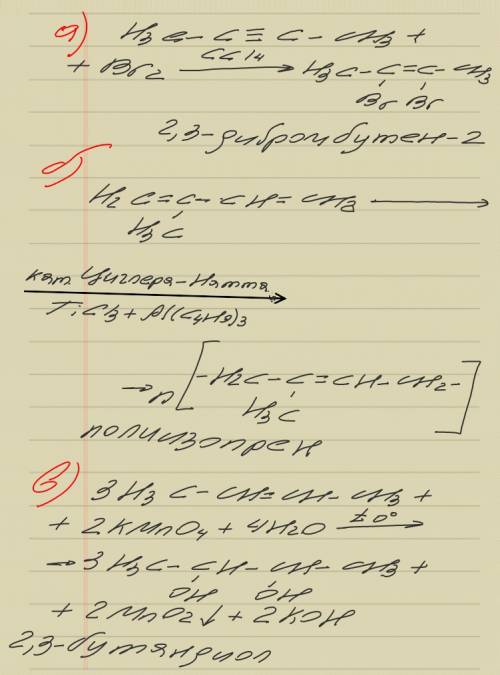 а) H3C - C ≡ C - CH3 +
+ Br2 CCl4 → H3C-C=C-CH3
Br Br
2,3-дибромбутен-2
б)
H2C=C-CH=CH3 →
H3C
кат Циглера-Натта
TiCl3 + Al(C4H9)3
→ n[-H2C-C=CH-CH2-]
H3C
полиизопрен
в) 3H3C-CH=CH-CH3 +
+ 2KMnO4 + 4H2O t 0° →
→ 3H3C-CH-CH-CH3 +
OH OH
+ 2MnO2↓ + 2KOH
2,3-бутандиол